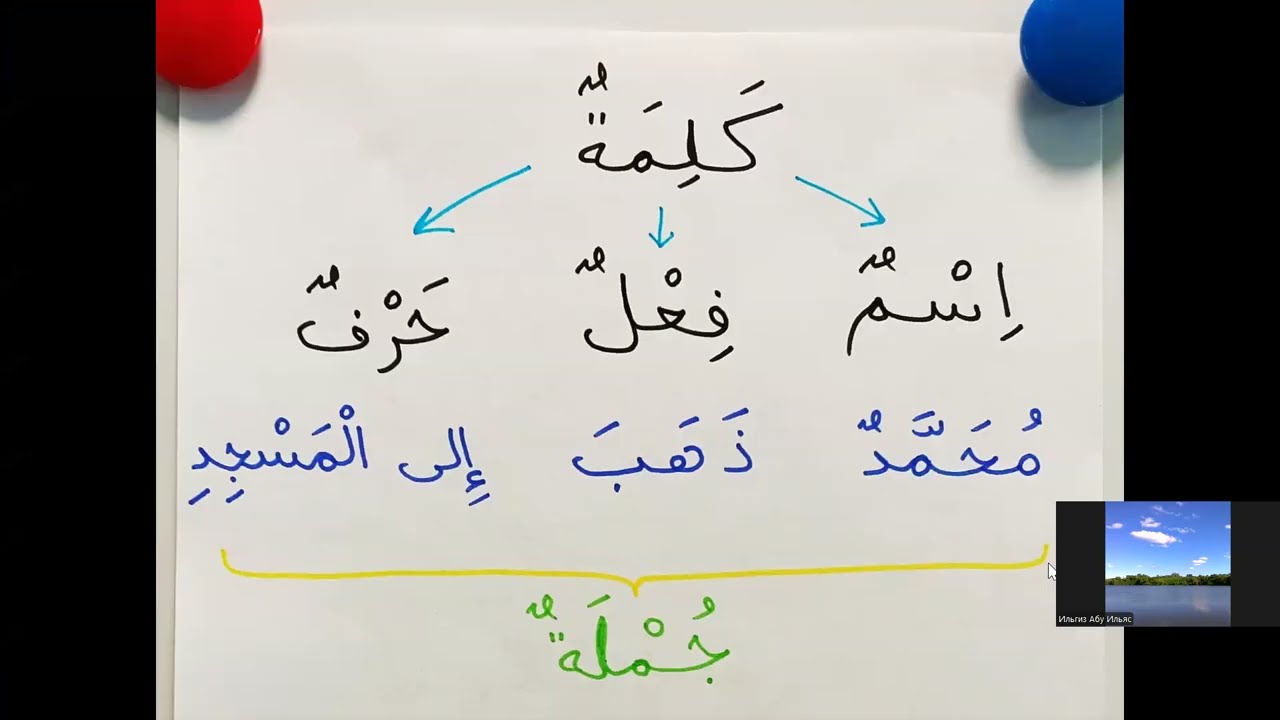 كَلِمَةٌ
اِسْمٌ فِعْلٌ حَرْفٌ
مُحَمَّدٌ ذَهَبَ إِلى الْمَسْجِدِ
جُمْلَةٌ
Ильгиз Абу Ильяс